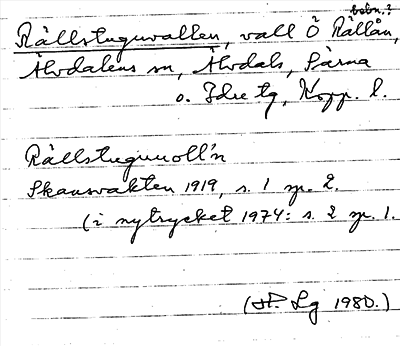 bebn.?
Rållstuguvallen, vall Ö Rållån,
Älvdalens sn, Älvdals, Särna
o. Idre tg, Kopp. l.
Rållstuguvoll'n
Skansvakten 1919, s. 1 sp. 2.
(i nytrycket 1974: s. 2 sp. 1.
(St. Lg 1980.)